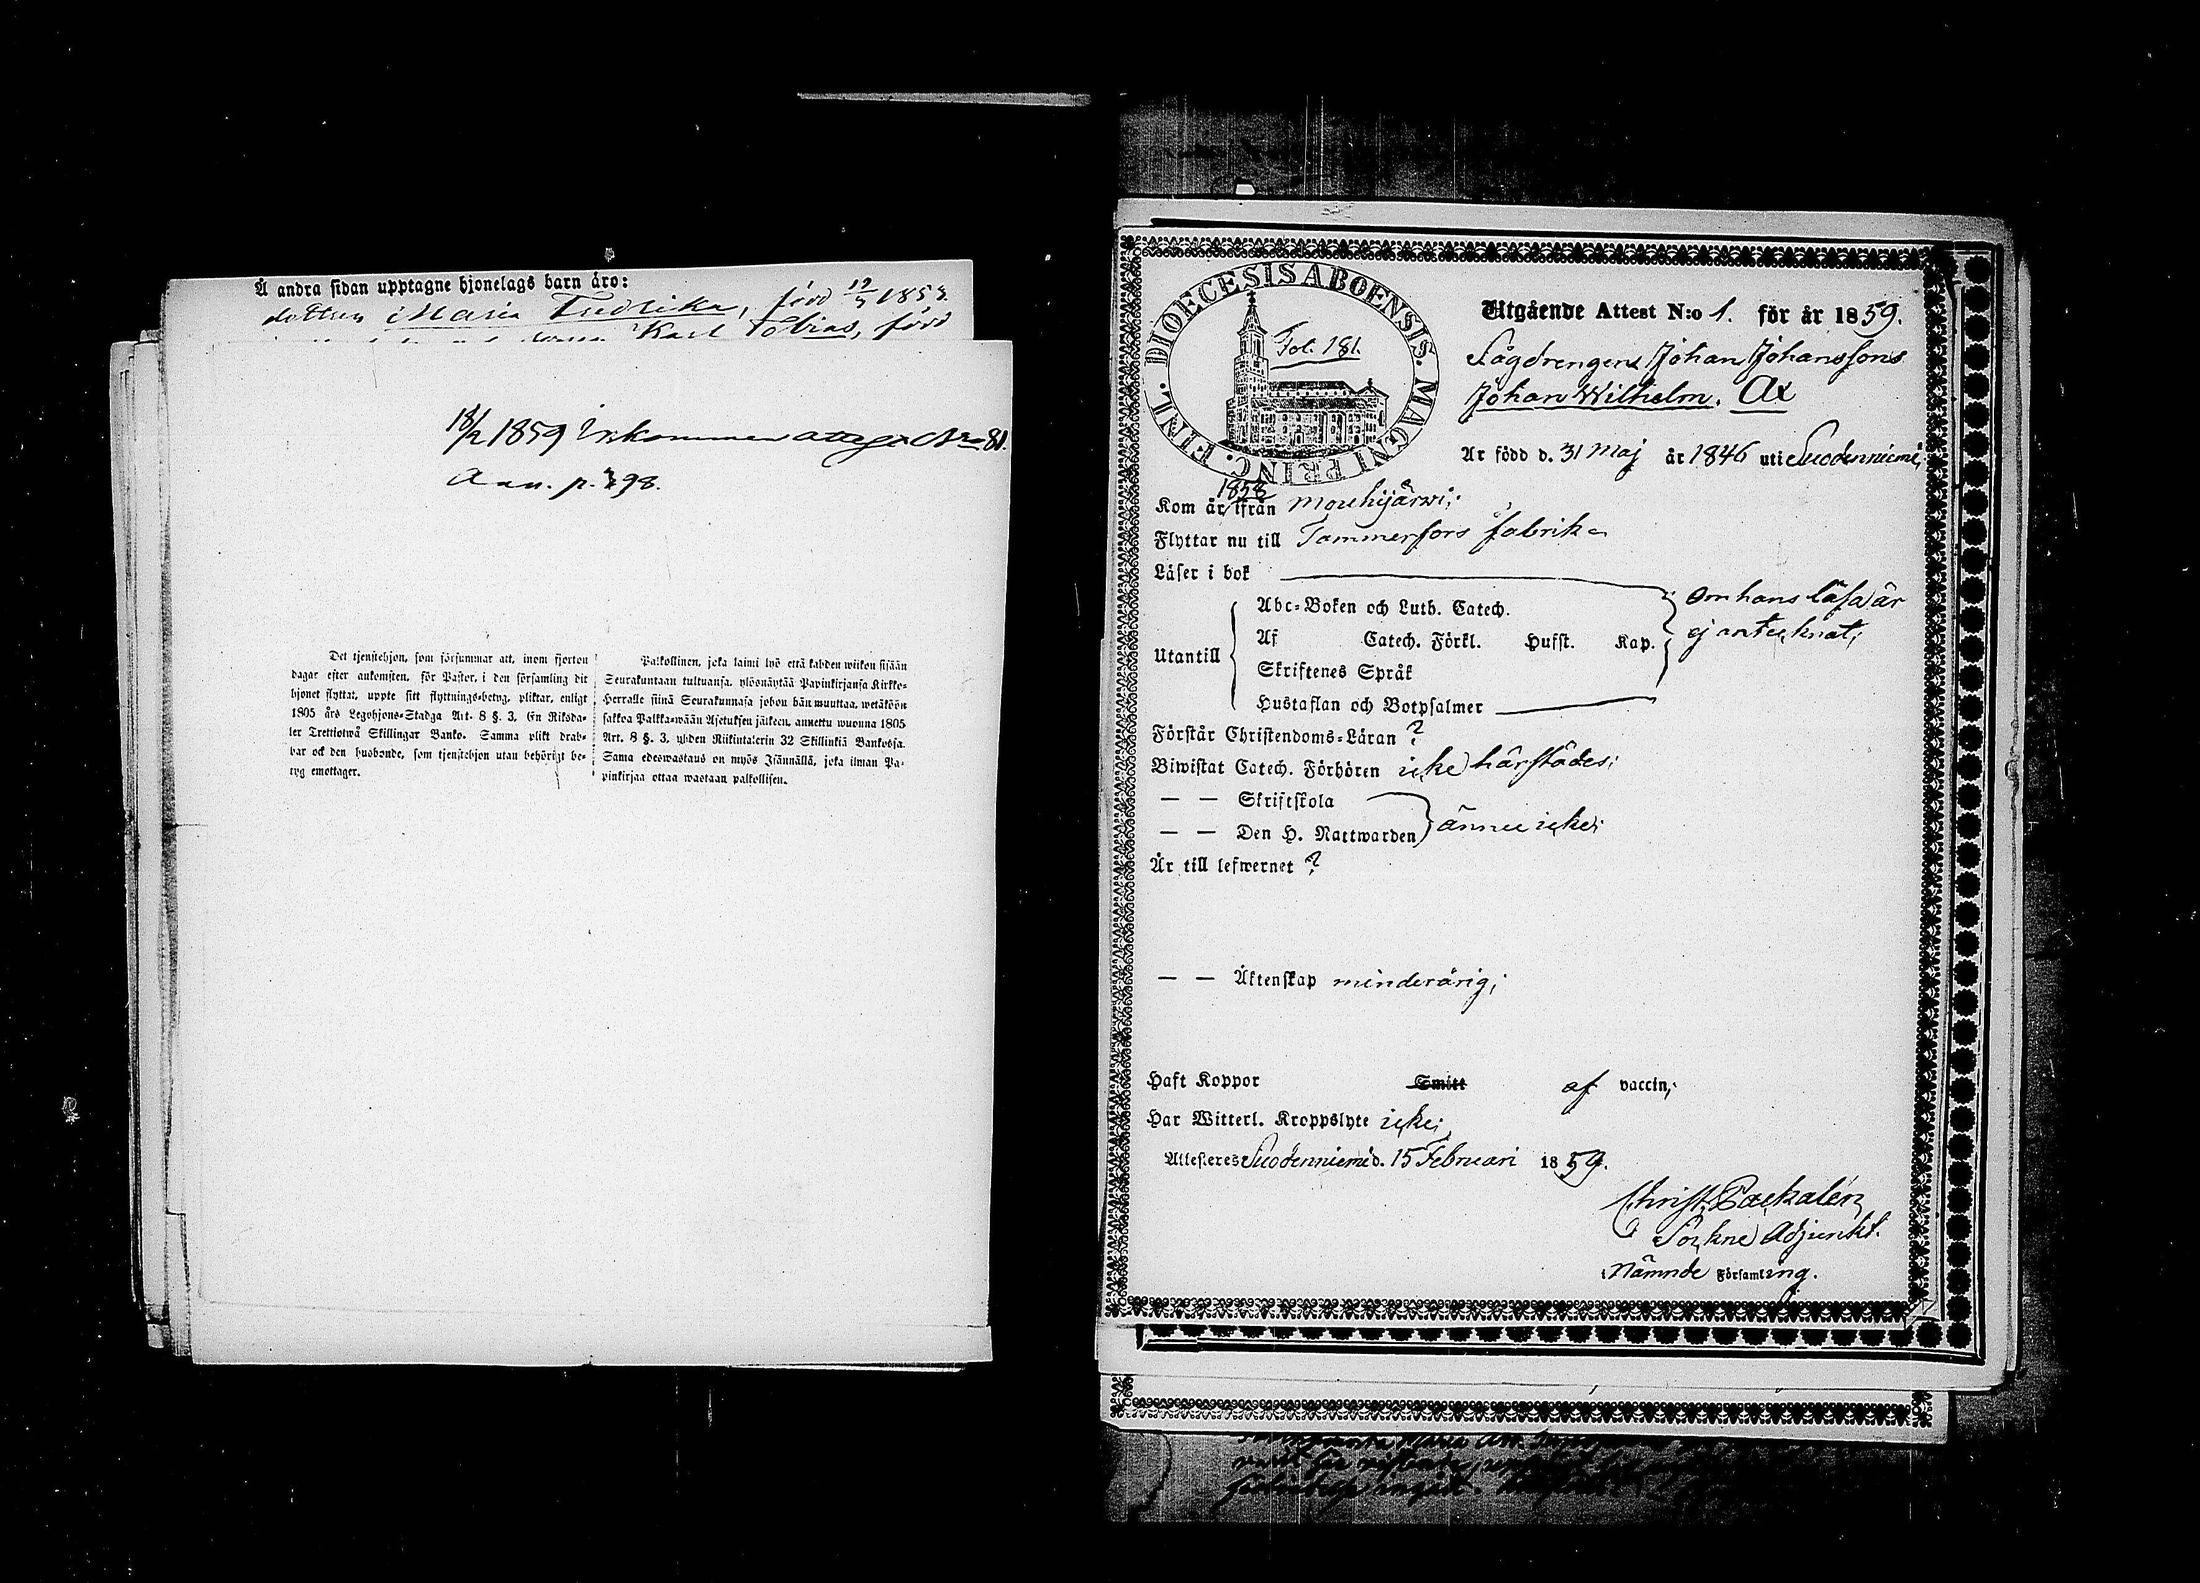 Å andra sidan upptagne hjonelags barn äro:
dottren Maria Fredrika, född 12/5 1853.
Karl Tobias, född
18/2 1859 Inkommen attest No 81.
p. 398.
Det tjenstehjon, som försummar att, inom fjorton
dagar efter ankomsten, för Pastor, i den församling dit
hjonet flyttat, uppte sitt flyttnings-betyg, pliktar, enligt
1805 års Legohjons-Stadga Art. 8 §. 3, En Riksda-
ler Trettiotwå Skillingar Banko. Samma plikt drab-
bar ock den husbonde, som tjenstehjon utan behörigt be-
tyg emottager.
Palkollinen, joka laimi lyö että kahden wiikon sisään
Seurakuntaan tultuansa, ylösnäytää Papinkirjansa Kirkko-
Herralle siinä Seurakunnasa johon hän muuttaa, wetäköön
sakkoa Palkka-wään Asetuksen jälkeen, annettu wuonna 1805
Art. 8 §. 3, yhden Riikintalerin 32 Skillinkiä Bankosja.
Sama edeswastaus on myös Isännällä, joka ilman Pa-
pinkirjaa ottaa wastaan palkollisen.
DIOECESIS ABOENSIS. MAGNI PRINC. FINL.
Fol. 181.
Utgående Attest N:o 1. för år 1859.
Sågdrengens Johan Johanssons
Johan Wilhelm. Ax
Är född d. 31 Maj år 1846 uti Suodenniemi;
1858
Kom år ifrån Mouhijärwi;
Flyttar nu till Tammerfors fabrik
Läser i bok
Abc-Boken och Luth. Catech.
Af Catech. Förkl. Husst. Kap.
Utantill
Skriftenes Språk
Hustaflan och Botpsalmer
om hans läsa är
ej antecknat;
Förstår Christendoms-Läran ?
Biwistat Catech. Förhören icke härstädes;
— — Skriftskola
— — Den H. Nattwarden
ännu icke;
Är till lefwernet ?
— — Äktenskap minderårig;
Haft Koppor Smitt af vaccin;
Har Witterl. Kroppslyte icke;
Attesteres Suodenniemi d. 15 Februari 1859.
Christ. Packalén
Sockne Adjunkt.
Nämnde Församling.